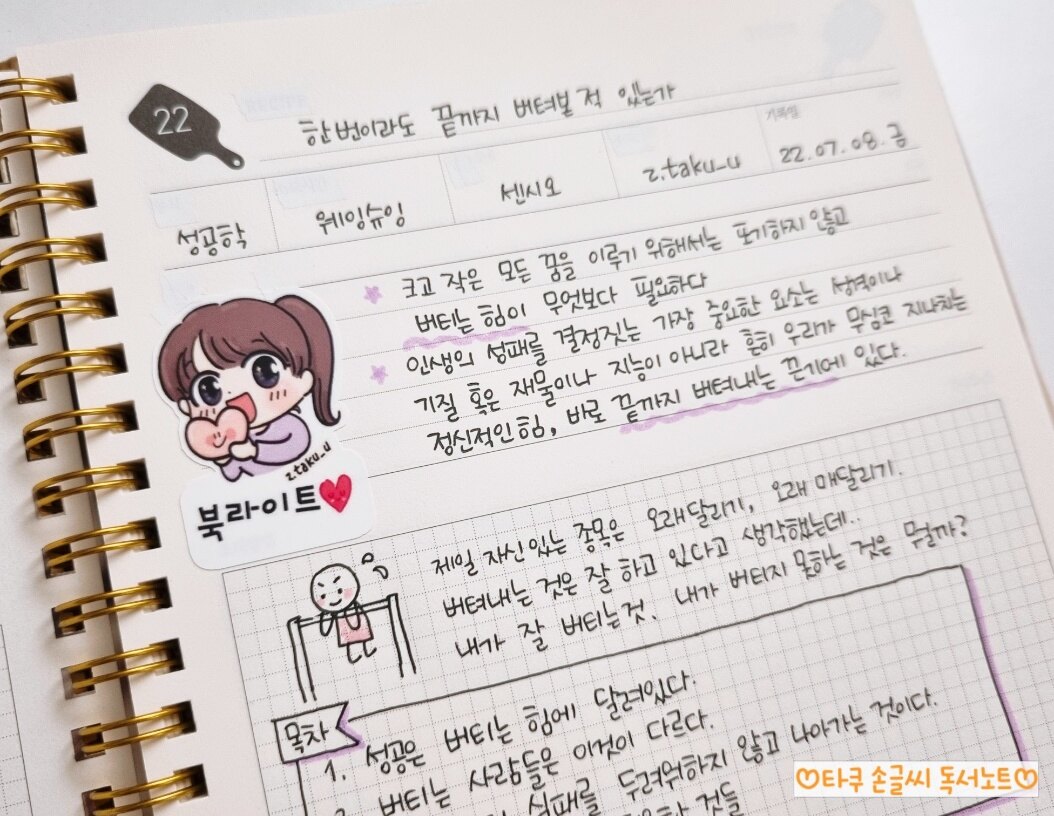 22
한번이라도 끝까지 버텨본 적 있는가
기록일
성공학
웨이슈잉
센시오
z.taku_u
22.07.08.금
크고 작은 모든 꿈을 이루기 위해서는 포기하지 않고
버티는 힘이 무엇보다 필요하다
인생의 성패를 결정짓는 가장 중요한 요소는 성격이나
기질 혹은 재물이나 지능이 아니라 흔히 우리가 무심코 지나치는
정신적인 힘, 바로 끝까지 버텨내는 끈기에 있다.
z.taku_u
북라이트
제일 자신있는 종목은 오래달리기, 오래 매달리기.
버텨내는 것은 잘 하고 있다고 생각했는데..
내가 잘 버티는것. 내가 버티지 못하는 것은 뭘까?
목차
1. 성공은 버티는 힘에 달려있다.
버티는 사람들은 이것이 다르다.
실패를 두려워하지 않고 나아가는 것이다.
것들
♡타쿠 손글씨 독서노트♡